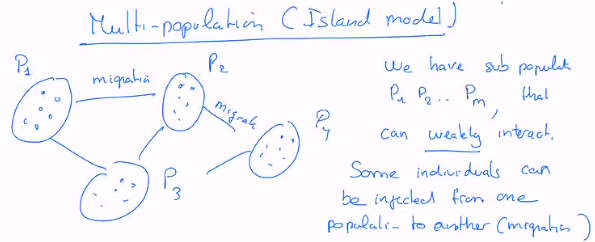 Multi-population (Island model)
P1
migration
P2
migrate
P4
P3
We have sub populati
P1 P2 .. Pm, that
can weakly interact.
Some individuals can
be injected from one
populati- to another (migration)